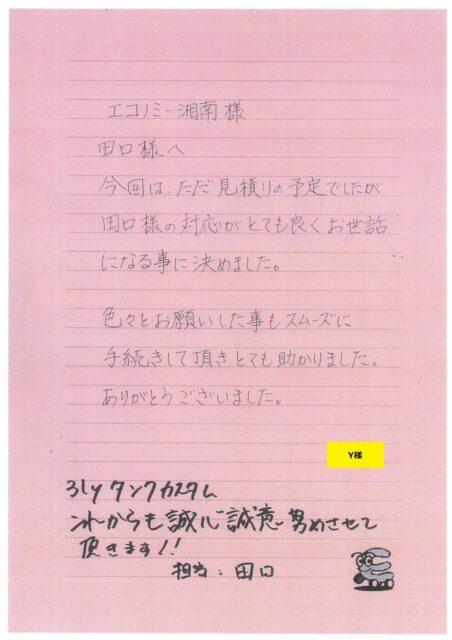 エコノミー湘南様
田口様へ
今回は、ただ見積りの予定でしたが
田口様の対応がとても良くお世話
になる事に決めました。
色々とお願いした事もスムーズに
手続きして頂きとても助かりました。
ありがとうございました。
Y様
31y タンクカスタム
これからも誠心誠意努めさせて
頂きます!!
担当:田口